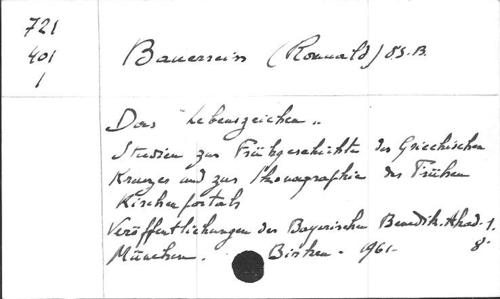 721
401
1
Bauerreiss (Romuald) OS.B.
Das "Lebenszeichen"
Studien zur Frühgeschichte des Griechischen
Kreuzes und zur Ikonographie des Frühen
Kirchenportals
Veröffentlichungen der Bayerischen Benedik. Akad-1.
München. Birken - 1961- 8°